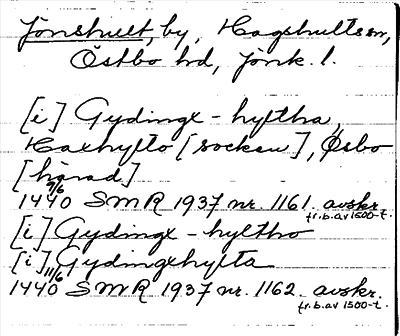 Jönshult, by, Hagshults sn,
Östbo hd, Jönk. l.
[i] Gydinge-hyltha,
Haxhylto [socken], Øsbo
[härad]
9/6
1440 SMR 1937 nr. 1161. avskr.
fr. b. av 1500-t.
[i] Gydinge-hyltho
[i] Gydingehylta
11/6
1440 SMR 1937 nr. 1162. avskr.
fr. b. av 1500-t.